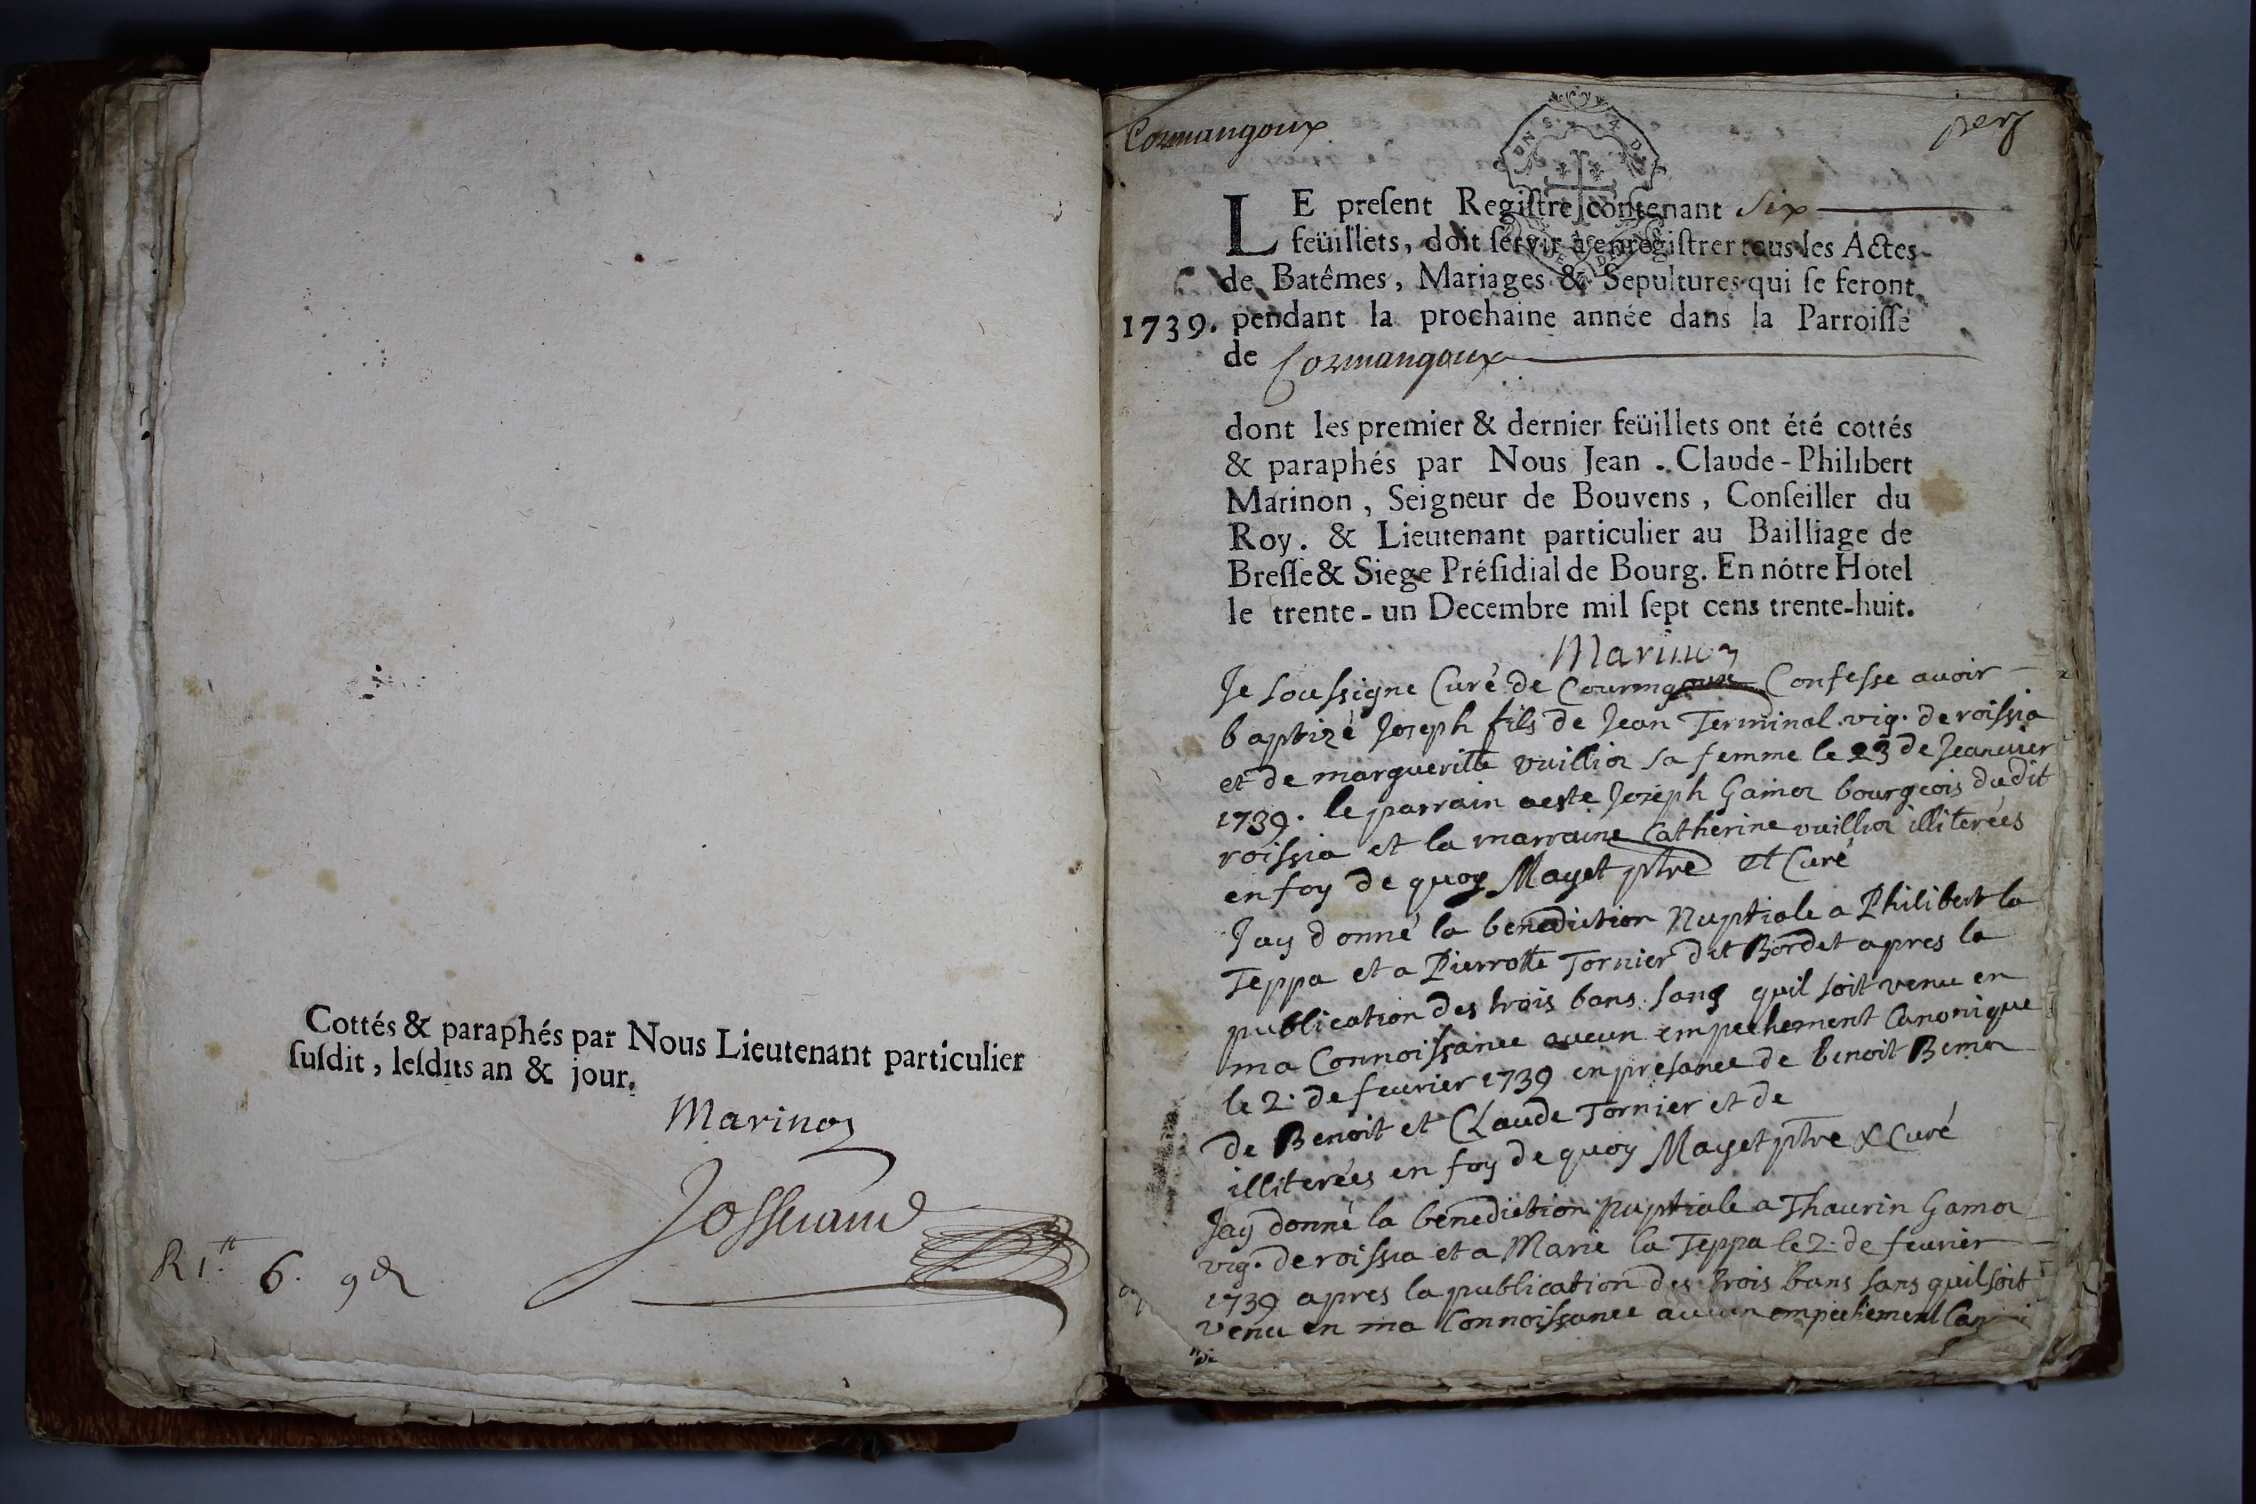 Cottés & paraphés par Nous Lieutenant particulier
ſuſdit, leſdits an & jour.
Marinon
Jossuand
R 1.tt 6. 9d
Cormangoux
1739.
LE preſent Regiſtre contenant six
feüillets, doit ſervir à enregiſtrer tous les Actes
de Batêmes, Mariages & Sepultures qui ſe feront
pendant la prochaine année dans la Parroiſſe
de Cormangoux
dont les premier & dernier feüillets ont été cottés
& paraphés par Nous Jean-Claude-Philibert
Marinon, Seigneur de Bouvens, Conſeiller du
Roy. & Lieutenant particulier au Bailliage de
Breſſe & Siege Préſidial de Bourg. En nôtre Hôtel
le trente-un Decembre mil ſept cens trente-huit.
Marinon
Je soussigne Curé de Courmgoux Confesse avoir
baptizé Joseph fils de Jean Terminal vig. de roissia
et de margueritte vuillion sa femme le 23 de Jeanvier
1739. le parrain aeste Joseph Gamon bourgeois dudit
roissia et la marraine Catherine vuillion illiterées
en foy de quoy Mayet ptre et Curé
Jay donné la benediction Nuptiale a Philibert la
Teppa et a Pierrotte Tornier dit Bordet apres la
publication des trois bans sans quil soit venu en
ma Connoissance aucun empechement Canonique
le 2. de fevrier 1739 en presance de benoit Bemon
de Benoit et Claude Tornier et de
illiterées en foy de quoy Mayet ptre & Curé
Jay donné la benediction Nuptiale a Thaurin Gamon
vig. de roissia et a Marie la Teppa le 2. de fevrier
1739 apres la publication des trois bans sans quil soit
venu en ma Connoissance aucun empechement